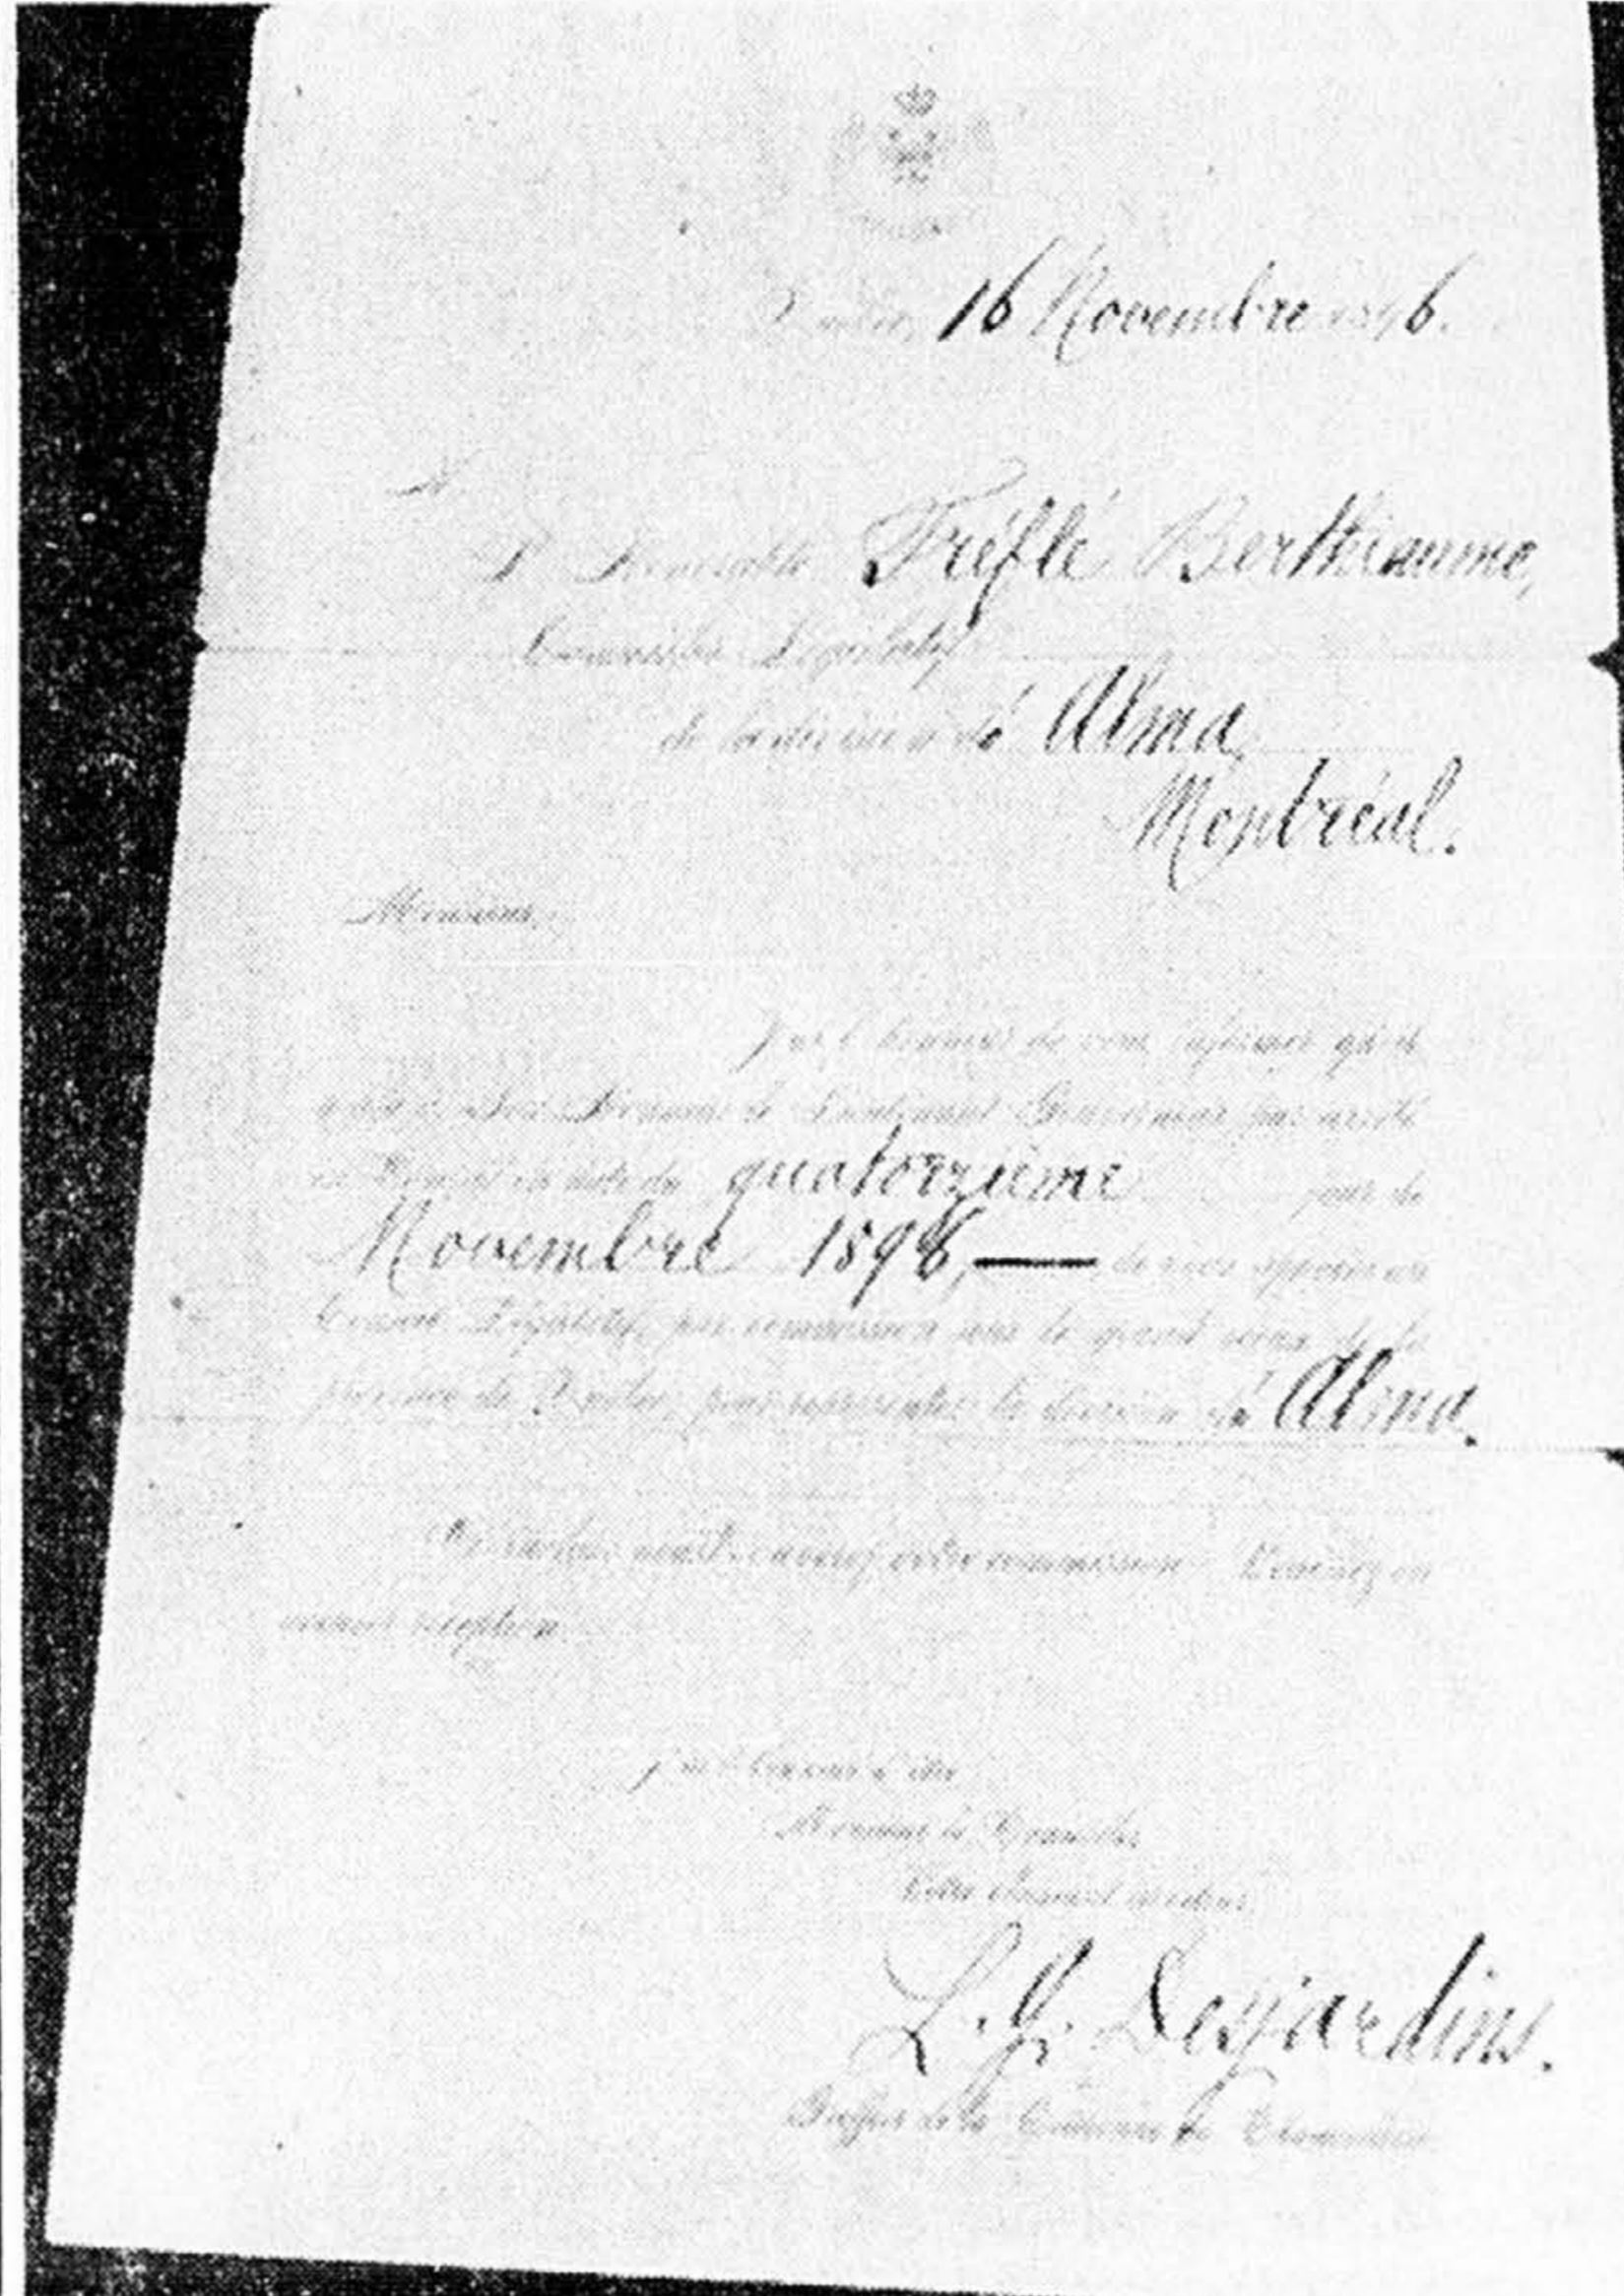 Québec, 16 Novembre 1896.
A
L'Honorable Tréflé Berthiaume,
Conseiller Législatif
de la division d' Alma,
Montréal.
Monsieur,
J'ai l'honneur de vous informer qu'il
a plu à Son Honneur le Lieutenant Gouverneur par arrêté
en Conseil en date du quatorzième jour de
Novembre 1896, — de vous appeler au
Conseil Législatif, par commission sous le grand sceau de la
province de Québec, pour représenter la division d' Alma.
votre commission
accuser réception.
J'ai l'honneur d'être
Monsieur le Conseiller
Votre obéissant serviteur
L. G. Desjardins.
Greffier de la Couronne en Chancellerie